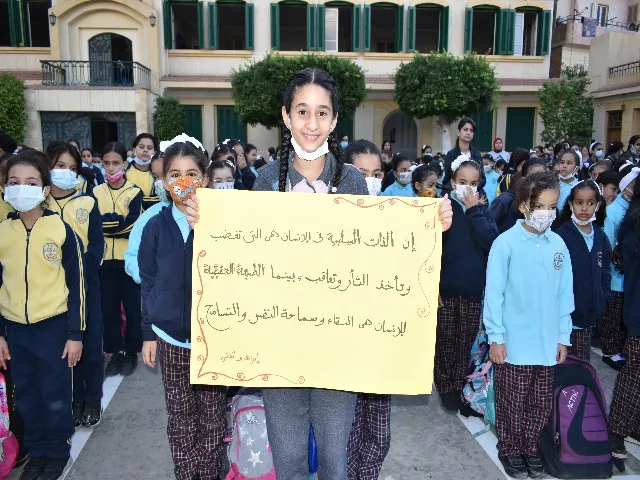 إن الذات السلبية في الإنسان هى التى تغضب
وتأخذ الثأر وتعاقب، بينما الطبيعة الحقيقية
للإنسان هى النقاء وسماحة النفس والتسامح